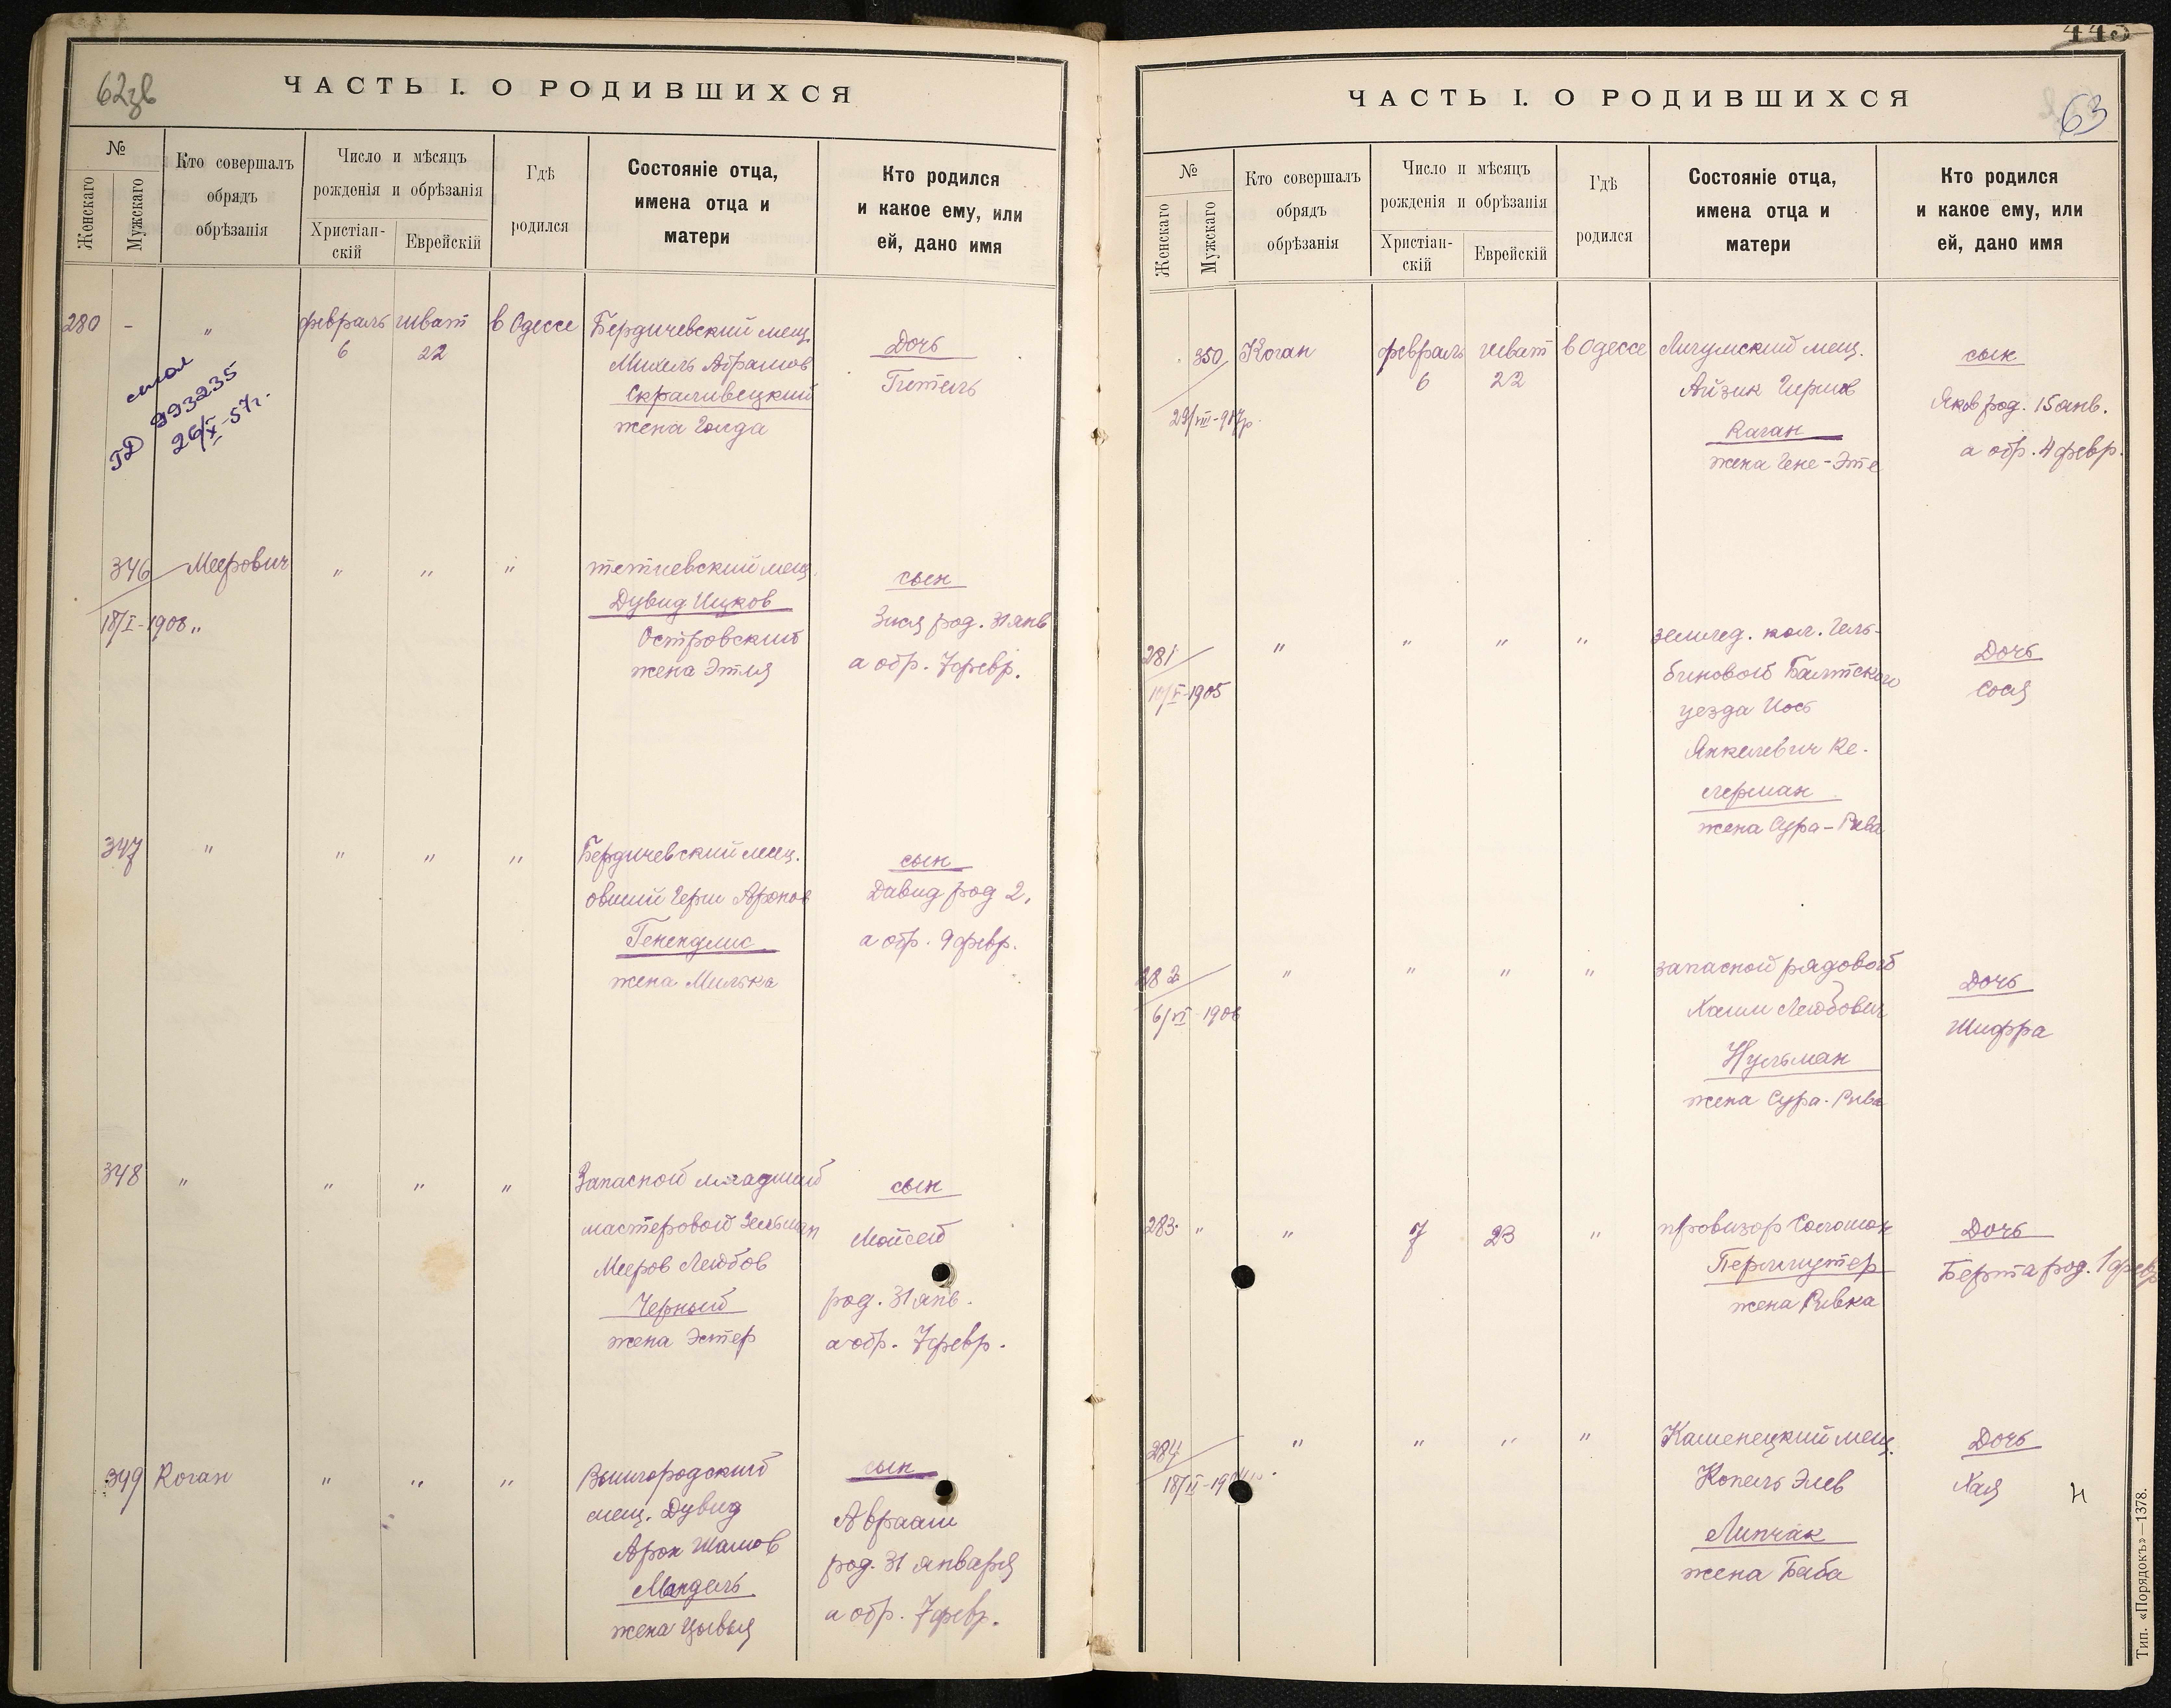 62зв
ЧАСТЬ I. О РОДИВШИХСЯ
№
Женскаго
Мужскаго
Кто совершалъ
обрядъ
обрѣзанія
Число и мѣсяцъ
рожденія и обрѣзанія
Христіан-
скій
Еврейскій
Гдѣ
родился
Состояніе отца,
имена отца и
матери
Кто родился
и какое ему, или
ей, дано имя
280 - " февраль 6 шват 22 в Одессе
Бердичевский мещ.
Михель Абрамов
Скраливецкий
жена Голда
Дочь
Гитель
993235
26/X-57г.
346 Меерович " " "
18/I-1908 "
тетиевский мещ.
Дувид Ицков
Островский
жена Этля
сын
Зися род. 31 янв
а обр. 7 февр.
347 " " " "
Бердичевский мещ.
Герш Аронов
Генендлис
жена Милька
сын
Давид род 2,
а обр. 9 февр.
348 " " " "
Запасной младший
мастеровой Зельман
Мееров Лейбов
Черный
жена Эстер
сын
Мойсей
род. 31 янв.
а обр. 7 февр.
349 Коган " " "
Вышгородский
мещ. Дувид
Арон Шамов
Мандель
жена Цывья
сын
Авраам
род. 31 января
а обр. 7 февр.
443
63
ЧАСТЬ I. О РОДИВШИХСЯ
№
Женскаго
Мужскаго
Кто совершалъ
обрядъ
обрѣзанія
Число и мѣсяцъ
рожденія и обрѣзанія
Христіан-
скій
Еврейскій
Гдѣ
родился
Состояніе отца,
имена отца и
матери
Кто родился
и какое ему, или
ей, дано имя
350 Коган февраль 6 шват 22 в Одессе
Лигумский мещ.
Айзик Гершов
Каган
жена Гене-Эте
сын
Яков род. 15 янв.
а обр. 4 февр.
281 " " " "
10/V-1905
землед. кол. Голь-
биновой Балтского
уезда Иось
Янкелевич Ке-
лерман
жена Сура-Рива
Дочь
Сося
282 " " " "
6/VI-1906
запасной рядовой
Хаим Лейбович
Нульман
жена Сура-Рива
Дочь
Шифра
283 " " 7 23 "
провизор Соломон
Перлмутер
жена Ривка
Дочь
Берта род. 1 февр
284 " " " "
Каменецкий мещ.
Копель Элев
Липчак
жена Баба
Дочь
Хая
Тип. «Порядокъ»—1378.